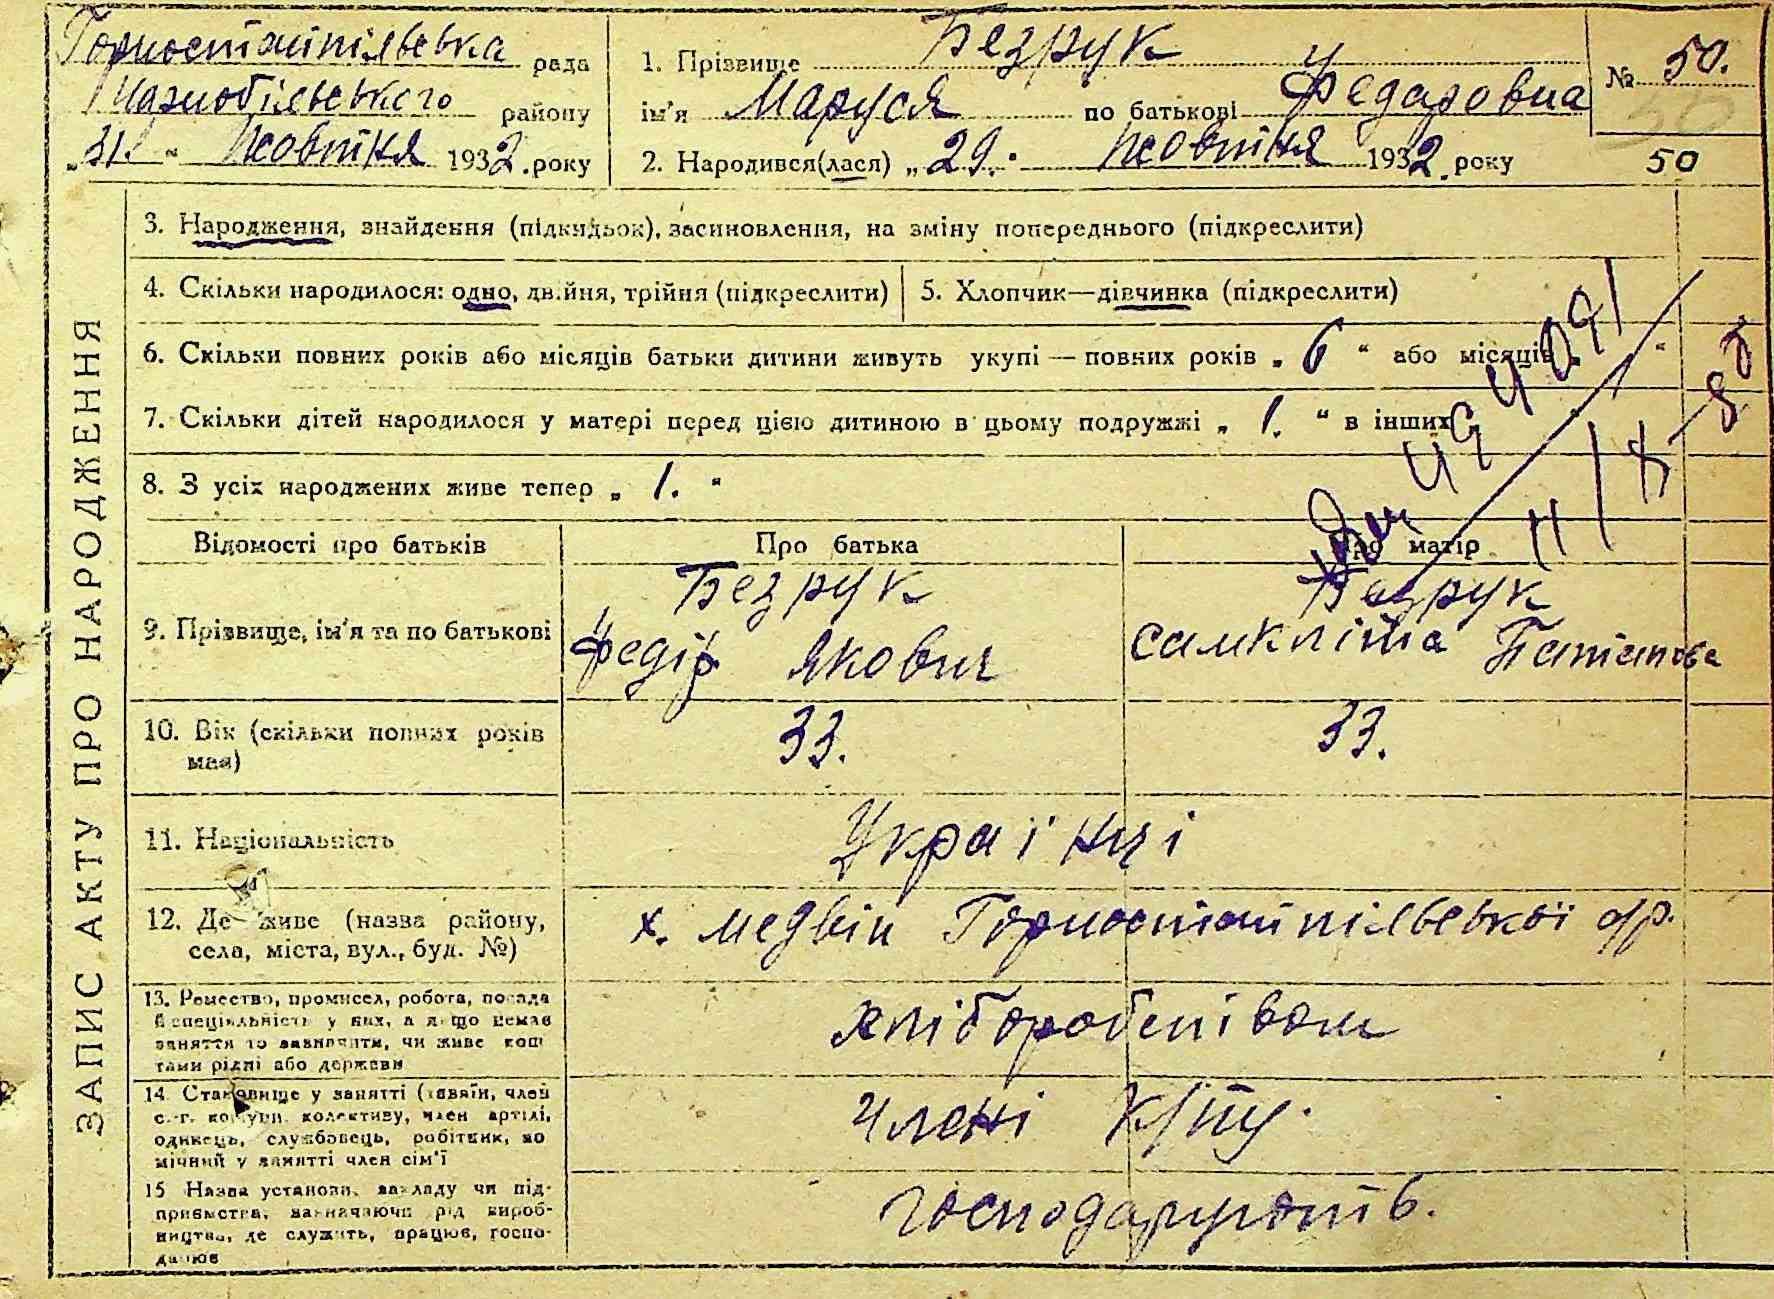 Горностайпільська рада
Чорнобільського району
„31.“ Жовтня 1932. року
1. Прізвище Безрук
ім'я Маруся по батькові Федаровна
2. Народився(лася) „29. Жовтня 1932. року
№ 50.
50
50
3. Народження, знайдення (підкидьок), засиновлення, на зміну попереднього (підкреслити)
4. Скільки народилося: одно, двійня, трійня (підкреслити)
5. Хлопчик—дівчинка (підкреслити)
6. Скільки повних років або місяців батьки дитини живуть укупі — повних років „ 6 “ або місяців „ “
7. Скільки дітей народилося у матері перед цією дитиною в цьому подружжі „ 1. “ в інших
8. З усіх народжених живе тепер „ 1. “
ЗАПИС АКТУ ПРО НАРОДЖЕННЯ
Відомості про батьків
Про батька
Про матір
9. Прізвище, ім'я та по батькові
Безрук
Федір Якович
Безрук
10. Вік (скільки повних років
має)
33.
33.
11. Національність
Українці
12. Де живе (назва району,
села, міста, вул., буд. №)
х. медвін Горностайпільської с/р.
13. Ремество, промисел, робота, посада
й спеціяльність у них, а якщо немає
заняття то зазначити, чи живе кош
тами рідні або держави
хліборобством
14. Становище у занятті (хазяїн, член
с.-г. комуни, колективу, член артілі,
одинець, службовець, робітник, по
мічний у занятті член сім'ї
члені
15 Назва установи, закладу чи під-
приємства, зазначаючи рід вироб-
ництва, де служить, працює, госпо-
дарює
господарують.